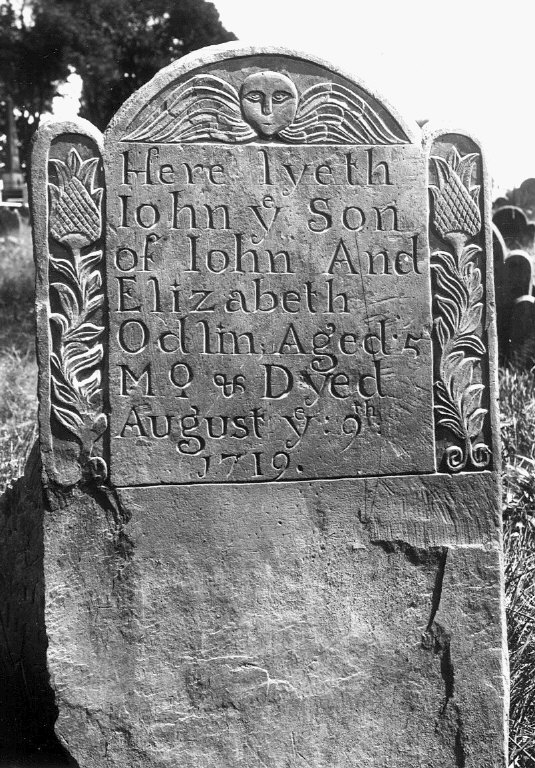 Here lyeth
Iohn yͤ Son
of Iohn And
Elizabeth
Odlin, Aged 5
Mo & Dyed
August yͤ: 9th
1719.